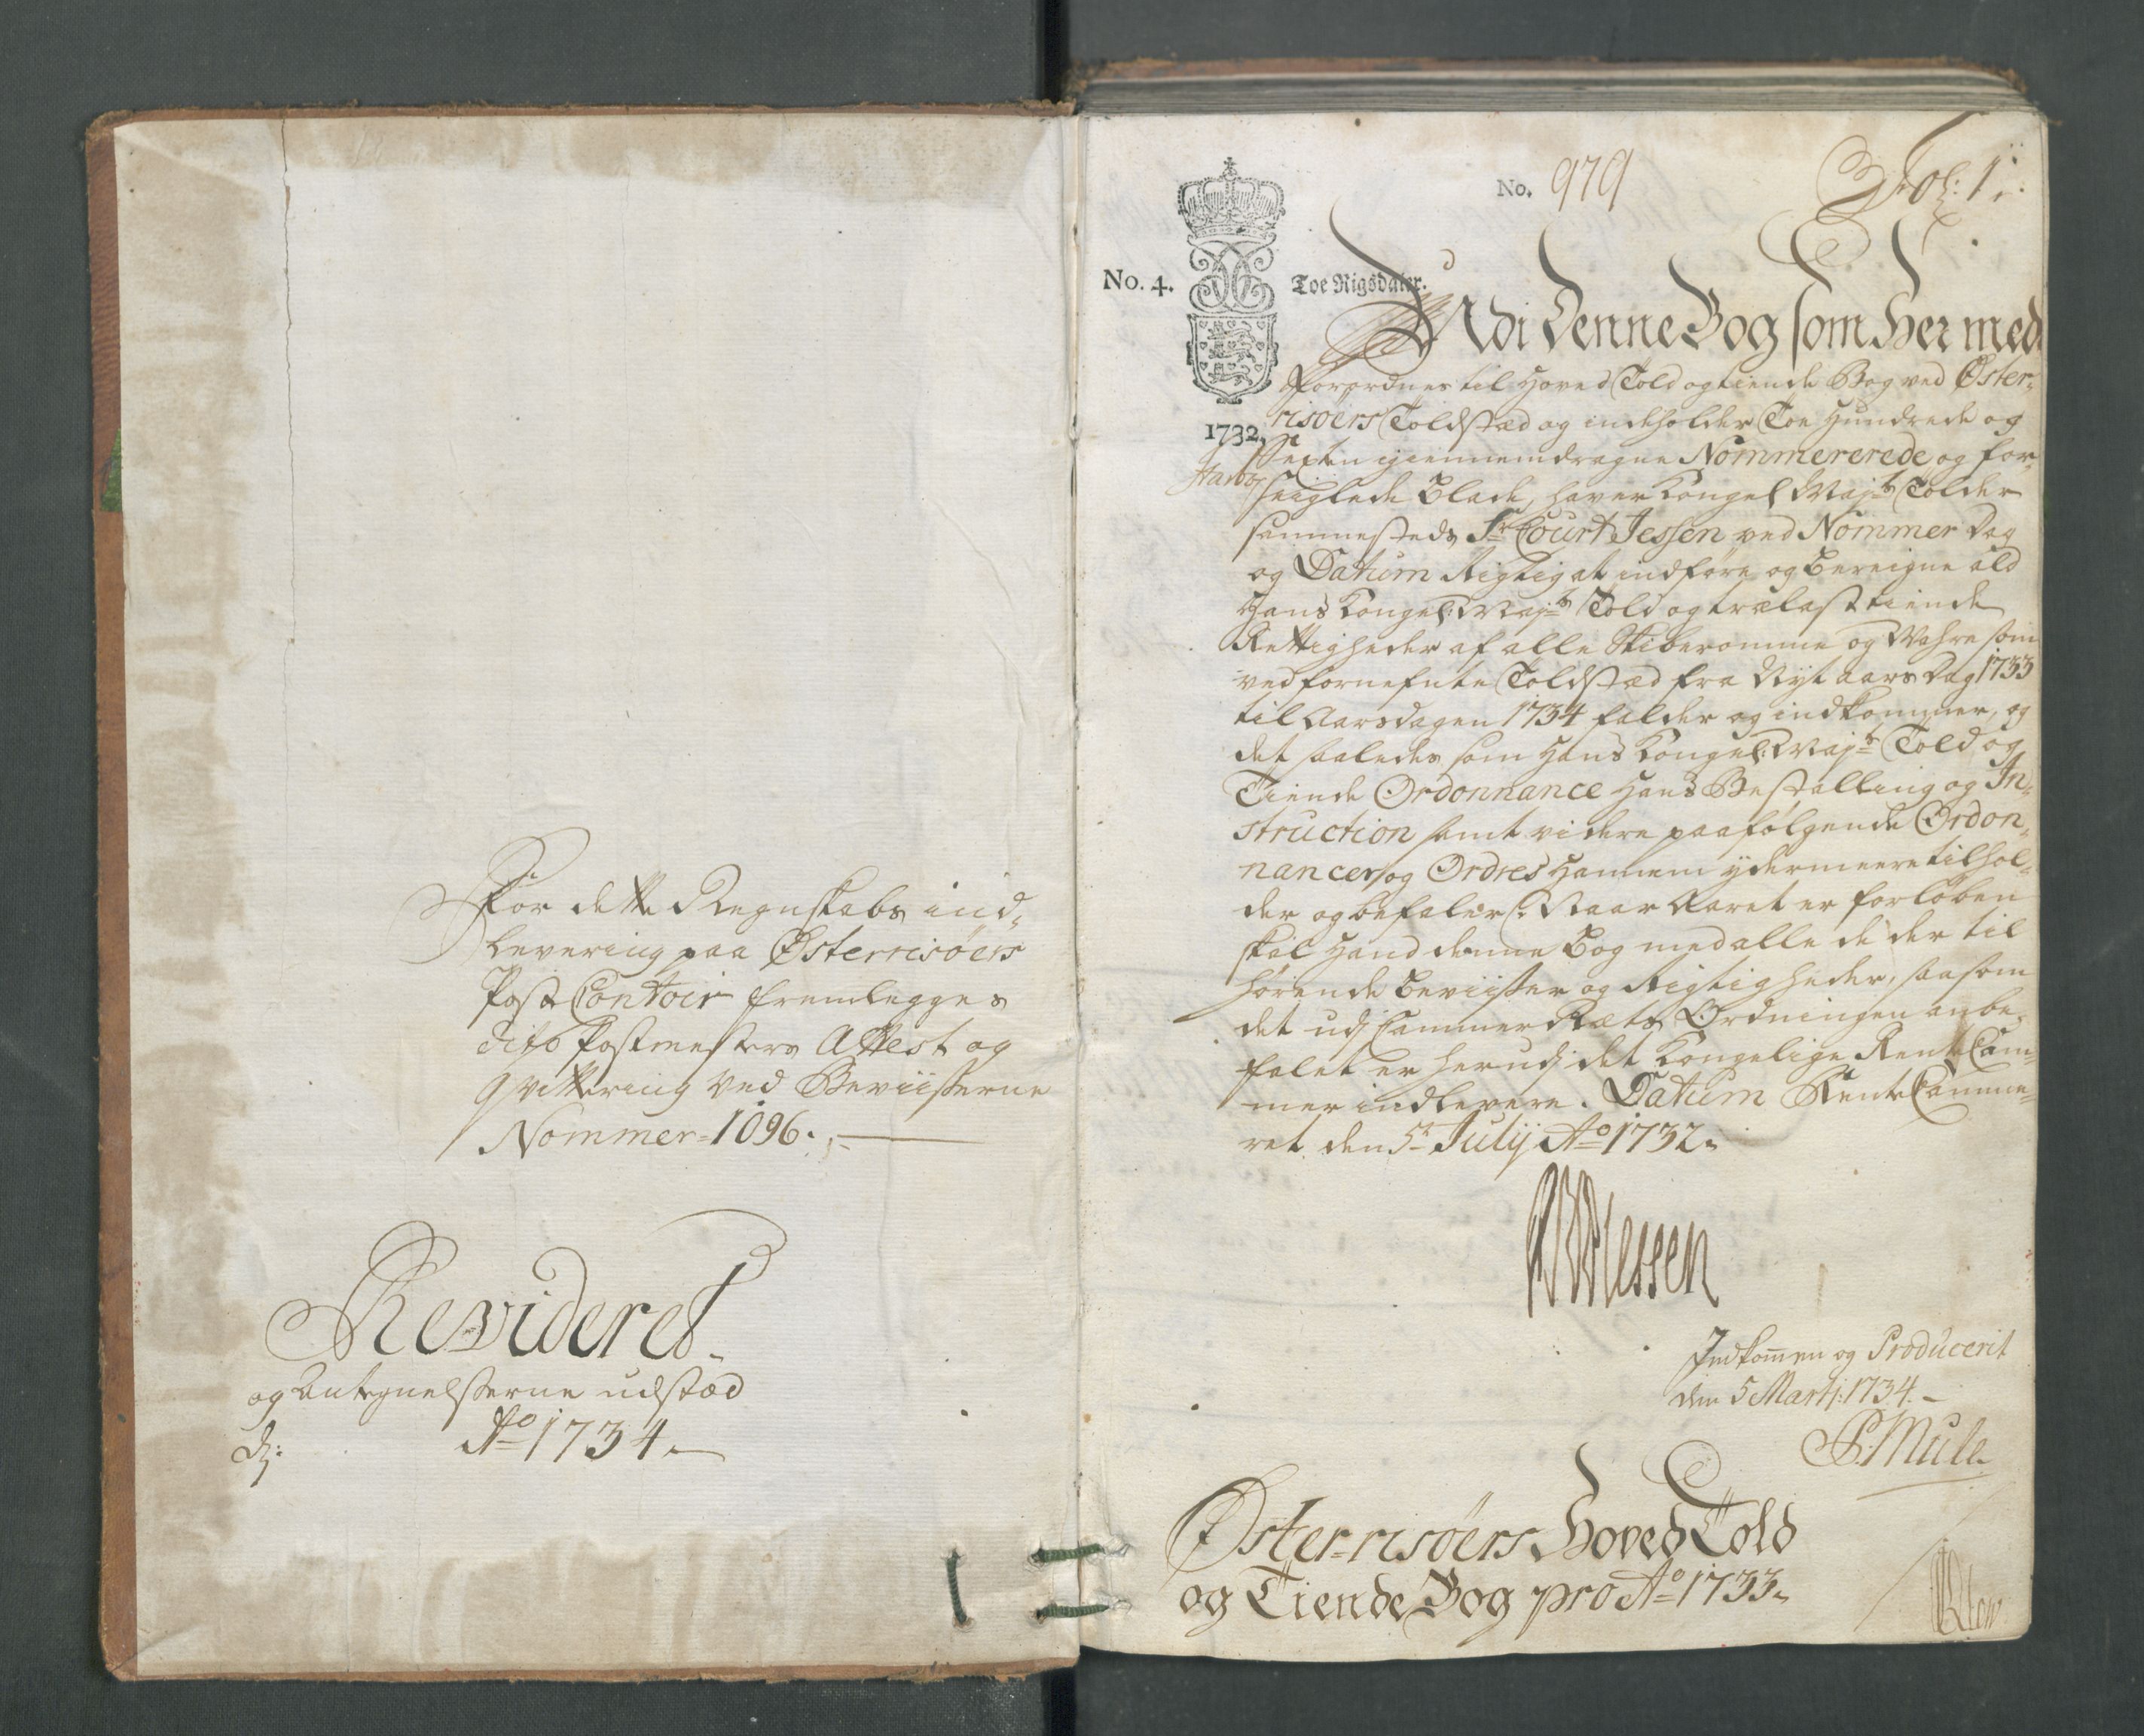 For dette Regnskabs ind-
levering paa Østerrisöers
Post Contoir fremlegges
dito Postmesters Attest og
Qvittering ved Beviiserne
Nommer 1096.
Revideret
og Antegnelserne udstæd
Ao 1734.
No. 979
Fol: 1.
No. 4. Toe Rigsdaler.
1732.
Udi Denne Bog som Her med
Forordnes til Hoved Told og tiende Bog ved Øster-
risöers Toldstæd og indeholder Toe Hundrede og
Sexten igiennemdragne Nommererede og for-
seiglede Blade, haver Kongel Majts Tolder
sammesteds Sr Court Jessen ved Nommer Dag
og Datum Rigtig at indföre og Bereigne ald
Hans Kongel: Majts Told og trælast tiende
Rettigheder af alle Skiberomme og Wahre som
ved fornefnte Toldstæd fra Nyt aars Dag 1733
til Aarsdagen 1734 falder og indkommer, og
det saaledes som Hans Kongel: Majts Told og
Tiende Ordonnance Hans Bestalling og In-
struction samt videre paafölgende Ordon-
nancer og Ordres Hannem ydermeere tilhol-
der og befaler. Naar Aaret er forlöben
skal Hand denne Bog med alle de der til
hörende Beviiser og Rigtigheder, saasom
det udj Cammer Rets Ordningen anbe-
falet er herudj det Kongelige Rente Cam-
mer indlevere. Datum Rente Camme-
ret den 5t Julij Ao 1732.
Indkommen og Producerit
den 5 Martj: 1734.
P. Mule.
Øster-risöers Hoved Told
og Tiende Bog pro Ao 1733.